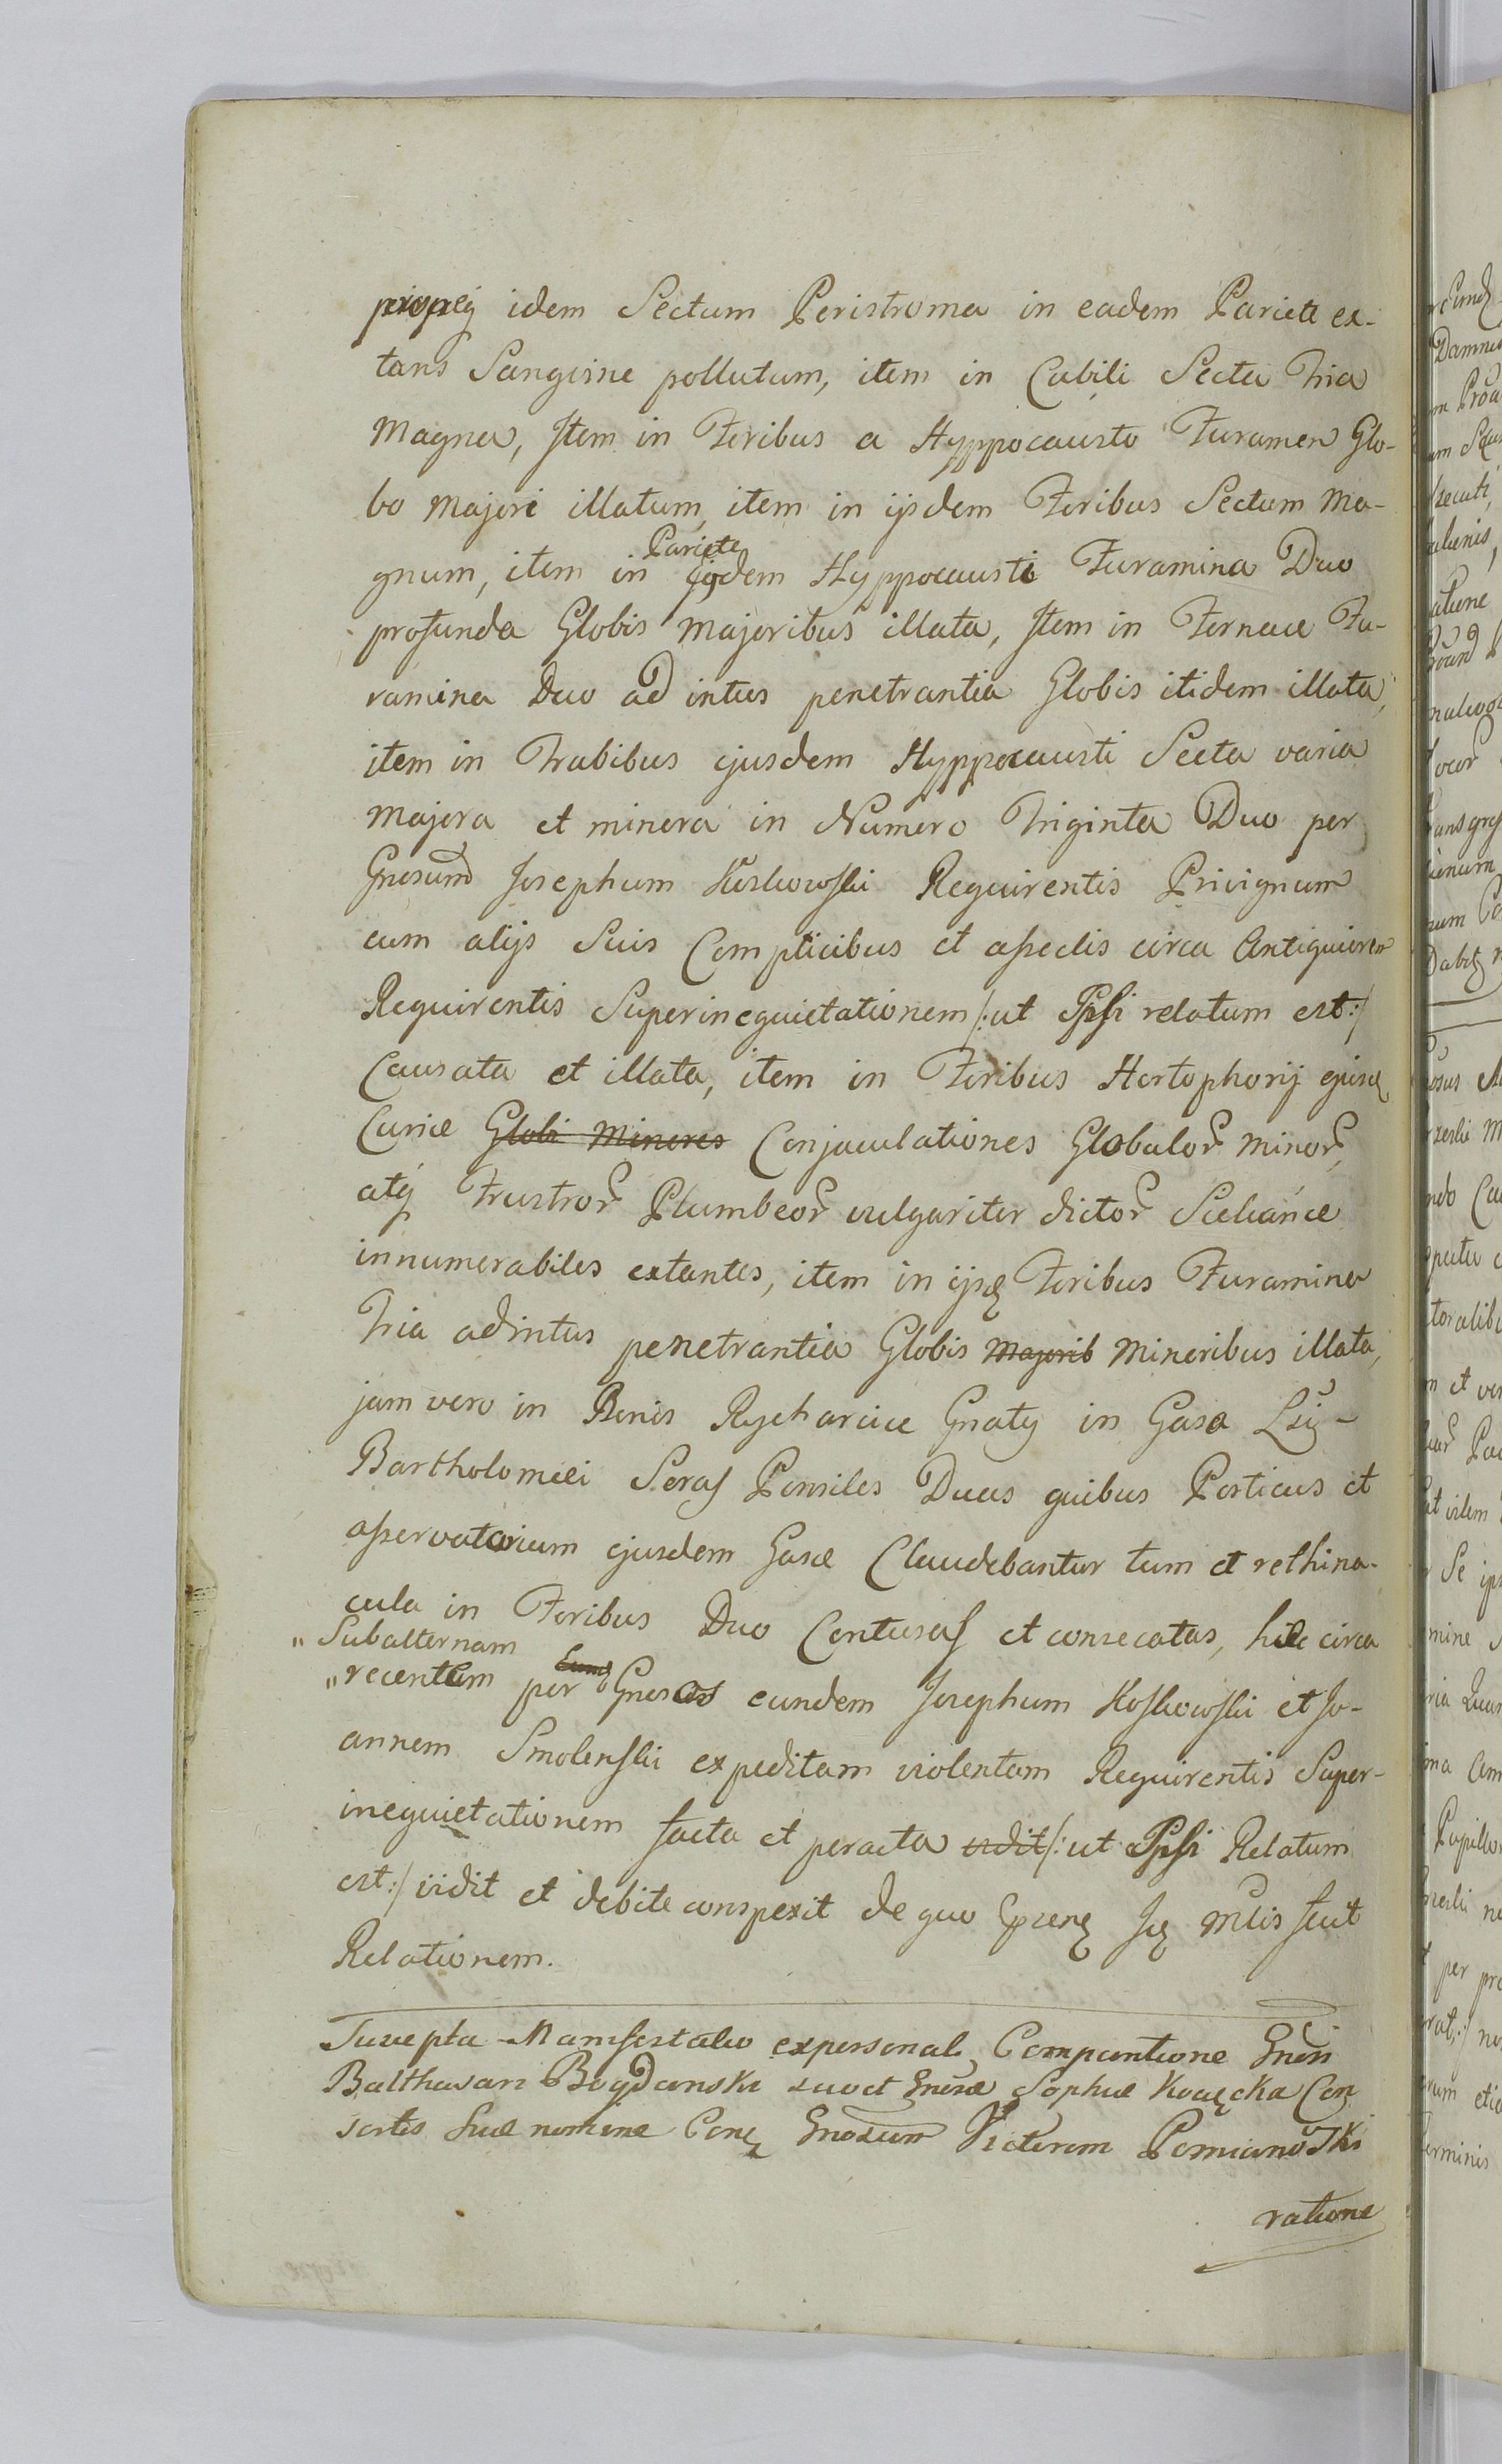 idem Sectum Peristroma in eadem Pariete ex-
tans Sanguine pollutum, item in Cubili Secta Tria
Magna, Item in Foribus a Hyppocausto Furamen Glo-
bo Majori illatum, item in ijsdem Foribus Sectum Ma-
Pariete
gnum, item in ejdem Hyppocausti Furamina Duo
profunda Globis Majoribus illata, Item in Fornace Fu-
ramina Duo ad intus penetrantia Globis itidem illata,
item in Trabibus ejusdem Hyppocausti Secta varia
Majora et minora in Numero Triginta Duo per
Gnosum Josephum Koskowski Requirentis Privignum
cum alijs Suis Complicibus et asseclis circa Antiquiorem
Requirentis Superinequietationem /:ut Pssi relatum est:/
Causata et illata, item in Foribus Hortophorij ejusd
Curiæ Globi Minores Conjaculationes Globulor minor,
atq Frustror Plumbeor vulgariter dictor Siekańce
innumerabiles extantes, item in ijsd Foribus Furamina
Tria adintus penetrantia Globis Majorib Minoribus illata,
jam vero in Bonis Rycharcice Gnatq in Gasa
Bartholomæi Seras Pensiles Duas quibus Porticus et
asservatorium ejusdem Gasæ Claudebantur tum et rethina-
cula in Foribus Duo Contusas et consecatas, hæc circa
" Subalternam
" recentem per Eund Gnosos eundem Josephum Koskowski et Jo-
annem Smolenski expeditam violentam Requirentis Super-
inequietationem facta et peracta vidit /:ut Pssi Relatum
est:/ vidit et debite conspexit de quo Mlis fecit
Relationem.
Suscepta Manifestatio expersonali Comparitione Gnosi
Balthasari Bogdanski suo et Gnosæ Sophiæ Con
sortis Suæ nomine Con Gnosum Victorem Pomianowski
ratione